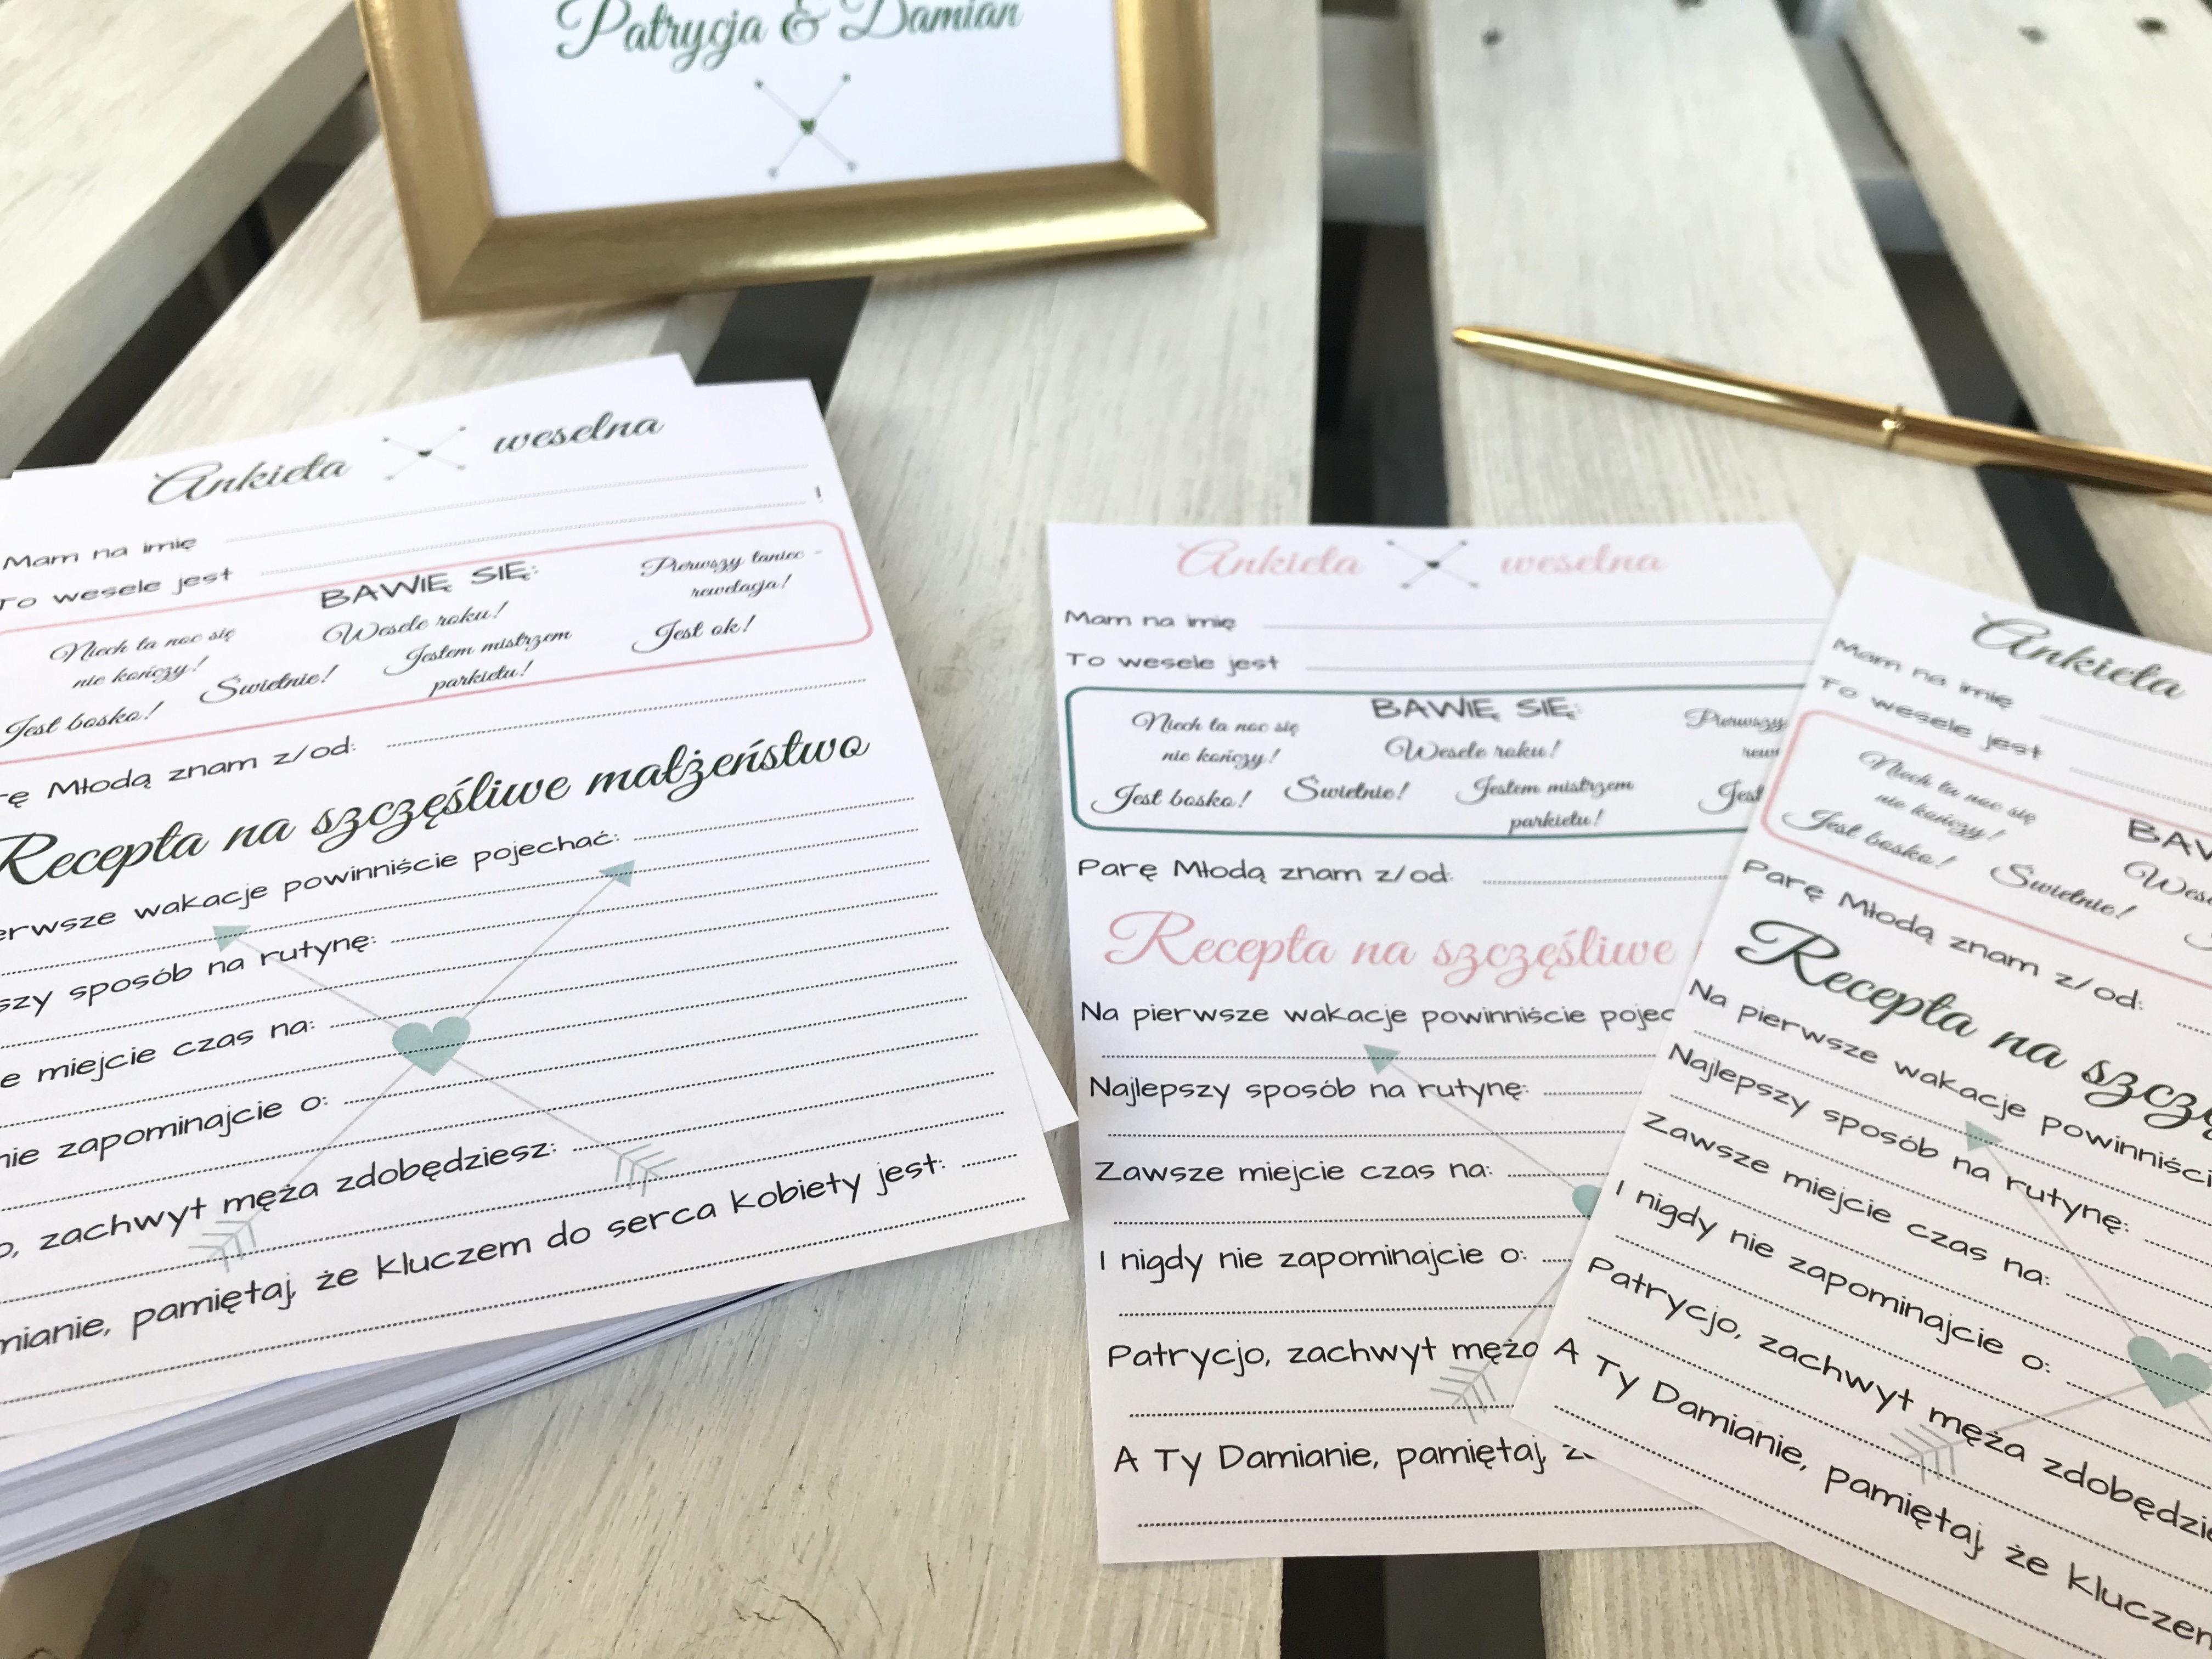 Patrycja & Damian
Ankieta weselna
Mam na imię
To wesele jest !
BAWIĘ SIĘ:
Niech ta noc się
nie kończy!
Wesele roku!
Pierwszy taniec -
rewelacja!
Jest bosko!
Świetnie!
Jestem mistrzem
parkietu!
Jest ok!
rę Młodą znam z/od:
Recepta na szczęśliwe małżeństwo
erwsze wakacje powinniście pojechać:
szy sposób na rutynę:
e miejcie czas na:
nie zapominajcie o:
o, zachwyt męża zdobędziesz:
mianie, pamiętaj, że kluczem do serca kobiety jest:
Ankieta weselna
Mam na imię
To wesele jest
BAWIĘ SIĘ:
Niech ta noc się
nie kończy!
Wesele roku!
Pierwszy
rewe
Jest bosko!
Świetnie!
Jestem mistrzem
parkietu!
Jest
Parę Młodą znam z/od:
Recepta na szczęśliwe
Na pierwsze wakacje powinniście pojec
Najlepszy sposób na rutynę:
Zawsze miejcie czas na:
I nigdy nie zapominajcie o:
Patrycjo, zachwyt męża
A Ty Damianie, pamiętaj, ż
Ankieta
Mam na imię
To wesele jest
BAW
Niech ta noc się
nie kończy!
Wese
Jest bosko!
Świetnie!
Parę Młodą znam z/od:
Recepta na szczę
Na pierwsze wakacje powinniści
Najlepszy sposób na rutynę:
Zawsze miejcie czas na:
I nigdy nie zapominajcie o:
Patrycjo, zachwyt męża zdobędzie
A Ty Damianie, pamiętaj, że kluczem